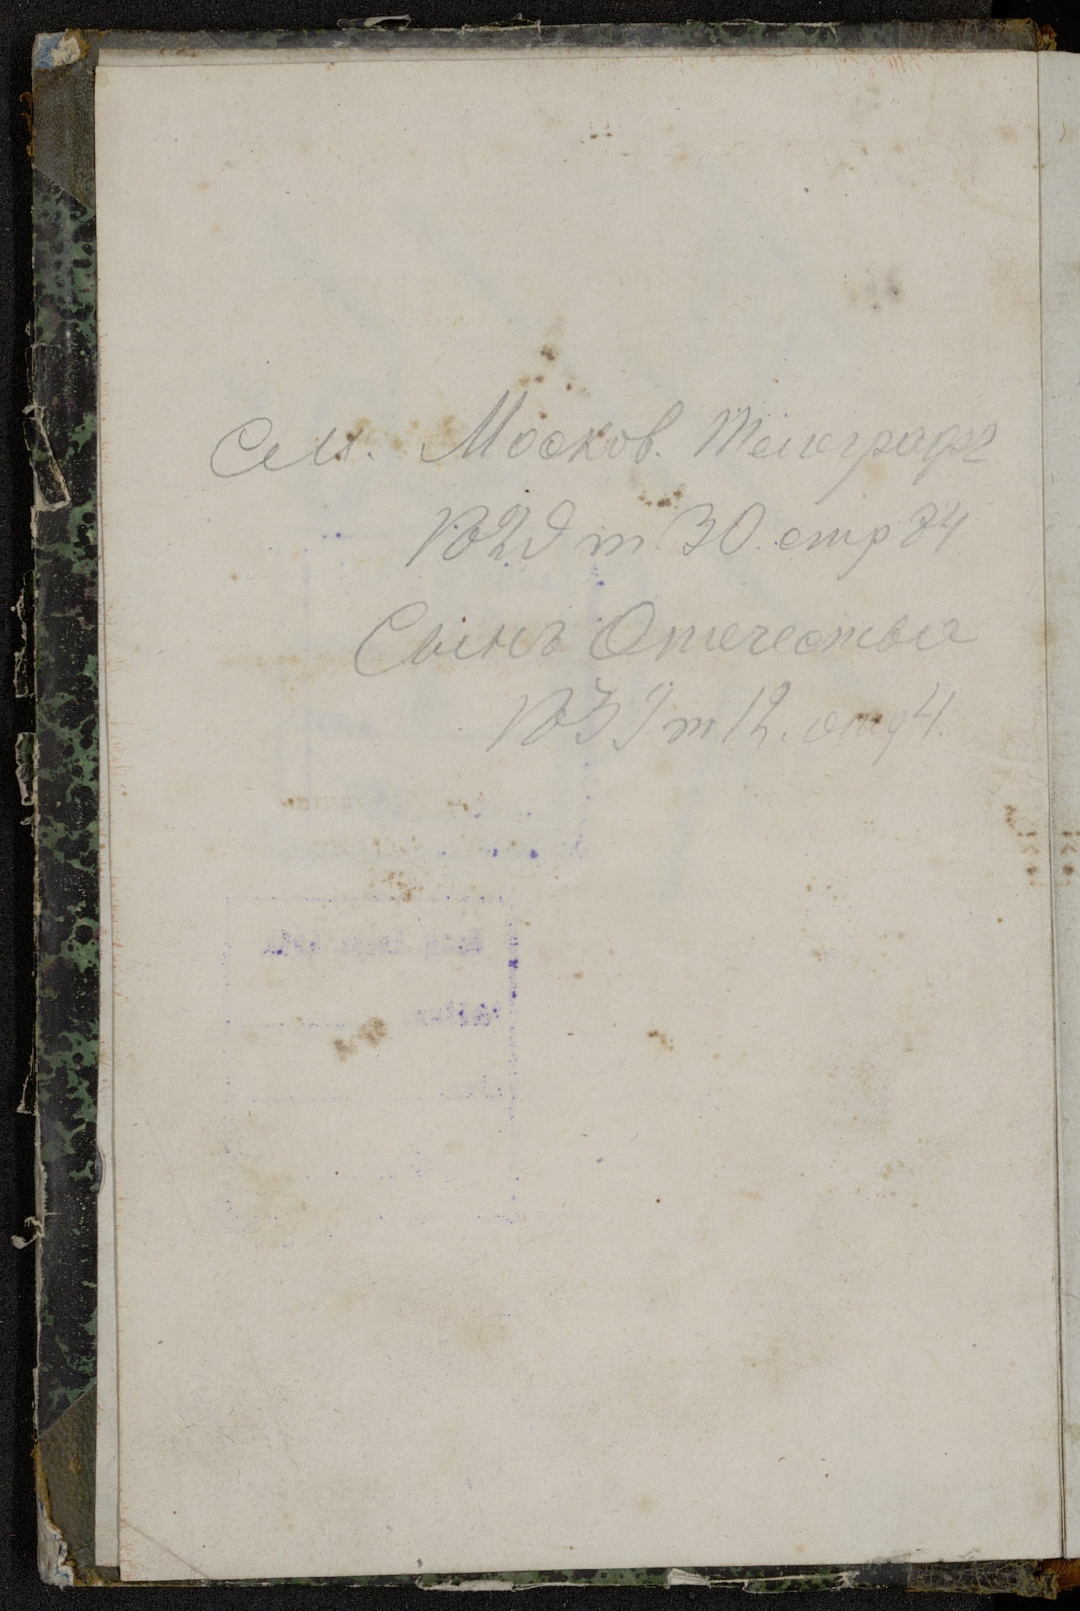 См. Москов. Телеграфъ
1829 т. 30. стр 84
Сынъ Отечества
1839 т 12. отд 4.